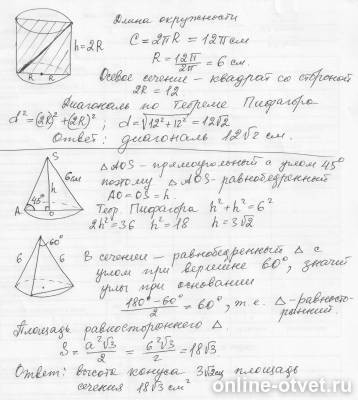 h=2R
R R
Длина окружности
C=2πR=12π см
R = 12π/2π = 6 см.
Осевое сечение - квадрат со стороной
2R=12
Диагональ по Теореме Пифагора
d²=(2R)²+(2R)²; d=√12²+12²=12√2
Ответ: диагональ 12√2 см.
S
6см
h
45°
A
O
△AOS - прямоугольный с углом 45°
поэтому △AOS - равнобедренный
AO=OS=h.
Теор. Пифагора h²+h²=6²
2h²=36 h²=18 h=3√2
60°
6 6
В сечении - равнобедренный △ с
углом при вершине 60°, значит
углы при основании
180°-60°/2 = 60°, т.е. △-равносто-
ронний.
Площадь равностороннего △.
S = a²√3/2 = 6²√3/2 = 18√3
Ответ: высота конуса 3√2см площадь
сечения 18√3 см²
online-otvet.ru